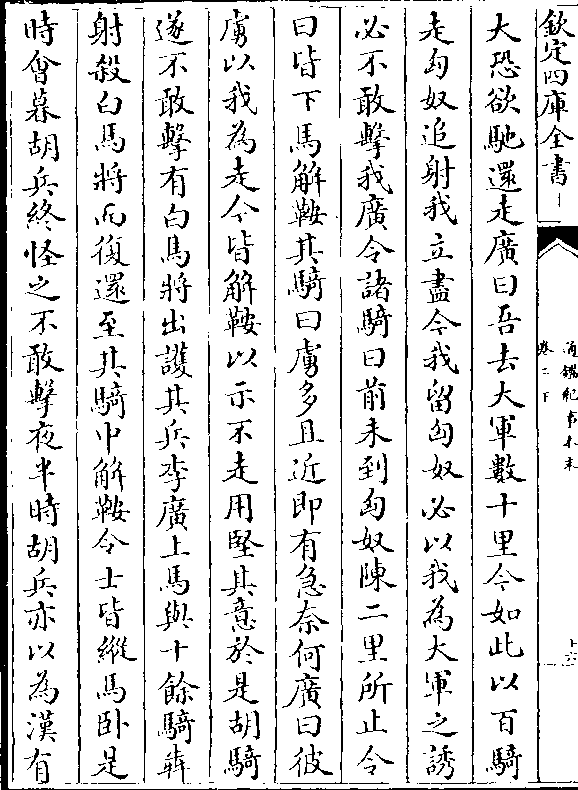 欽定四庫全書
通鑑紀事本末
卷二下
大恐欲馳還走廣曰吾去大軍數十里今如此以百騎
走匈奴追射我立盡今我留匈奴必以我為大軍之誘
必不敢擊我廣令諸騎曰前未到匈奴陳二里所止令
曰皆下馬解鞍其騎曰虜多且近即有急奈何廣曰彼
虜以我為走今皆解鞍以示不走用堅其意於是胡騎
遂不敢擊有白馬將出護其兵李廣上馬與十餘騎犇
射殺白馬將而復還至其騎中解鞍令士皆縱馬臥是
時會暮胡兵終怪之不敢擊夜半時胡兵亦以為漢有